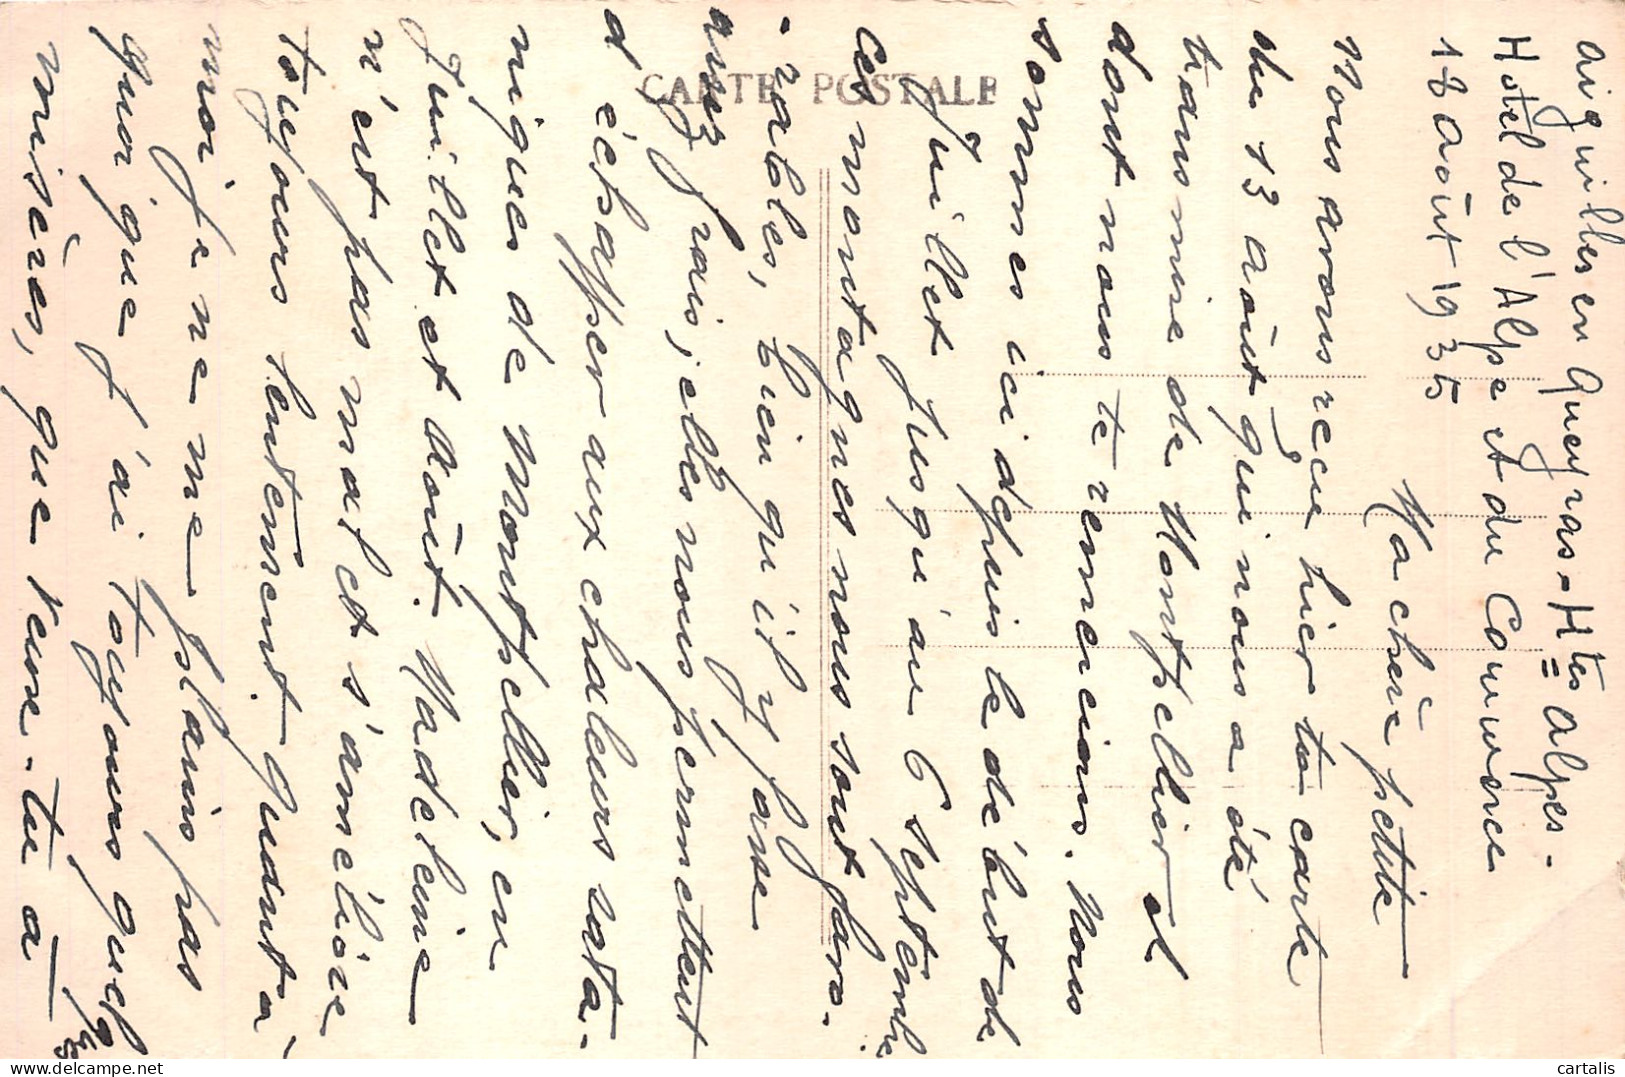 Aiguilles en Queyras - Htes Alpes -
Hôtel de l'Alpe et du Commerce
18 août 1935
Ma chère petite
Nous avons reçu hier ta carte
du 13 août qui nous a été
transmise de Montpellier et
dont nous te remercions. Nous
sommes ici depuis le début de
Juillet jusqu'au 6 septembre
Ces montagnes nous sont favo-
-rables, bien qu'il y fasse
assez frais, elles nous permettent
d'échapper aux chaleurs sata-
niques de Montpellier, en
Juillet et août. Madeleine
n'est pas mal et s'améliore
toujours lentement. Quant à
moi je ne me plains pas
quoique j'ai toujours quelques
misères, que veux-tu à
CARTE POSTALE
cartalis